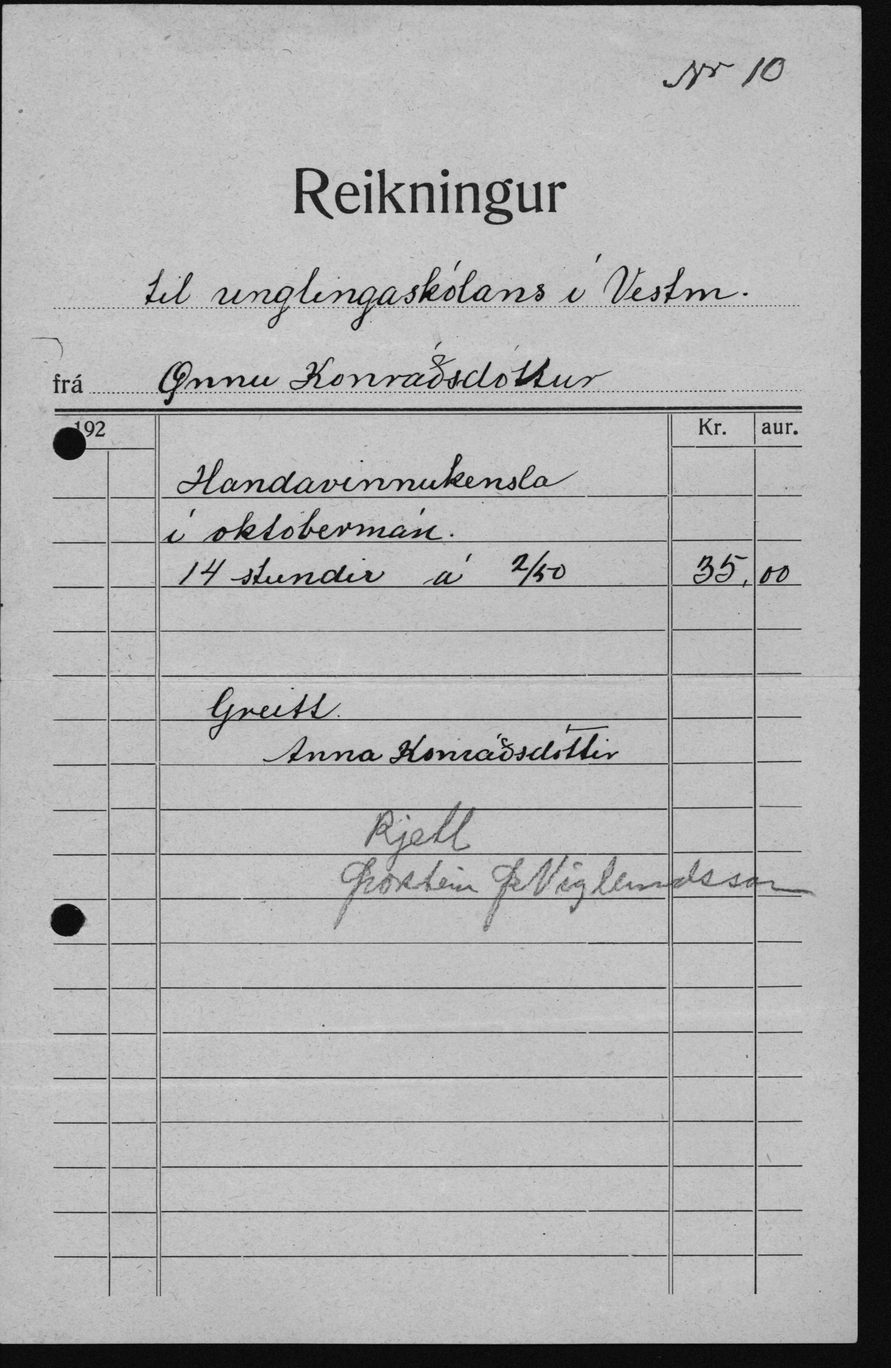 Nr 10
Reikningur
til unglingaskólans í Vestm.
frá Önnu Konráðsdóttur
192 Kr. aur.
Handavinnukensla
í októbermán.
14 stundir á 2/50 35,00
Greitt.
Anna Konráðsdóttir
Rjett
Þorsteinn Þ Víglundsson